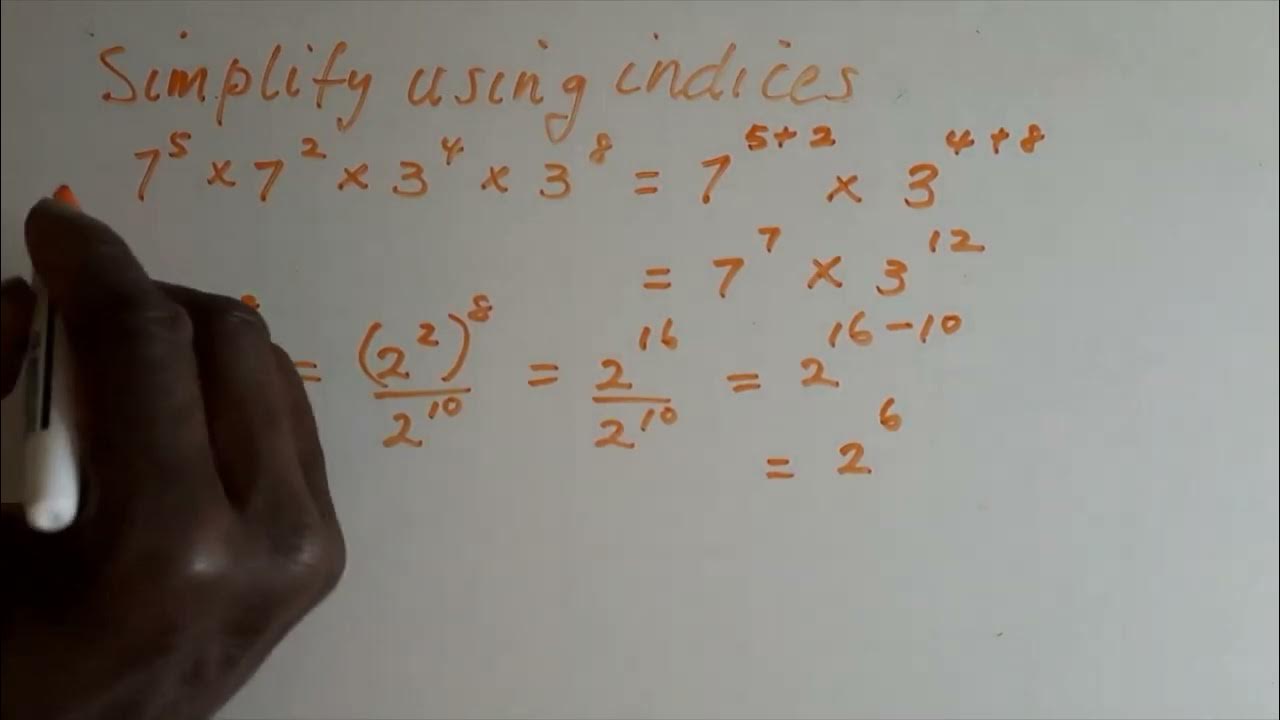 Simplify using indices
7⁵ × 7² × 3⁴ × 3⁸ = 7⁵⁺² × 3⁴⁺⁸
= 7⁷ × 3¹²
= (2²)⁸/2¹⁰ = 2¹⁶/2¹⁰ = 2¹⁶⁻¹⁰
= 2⁶